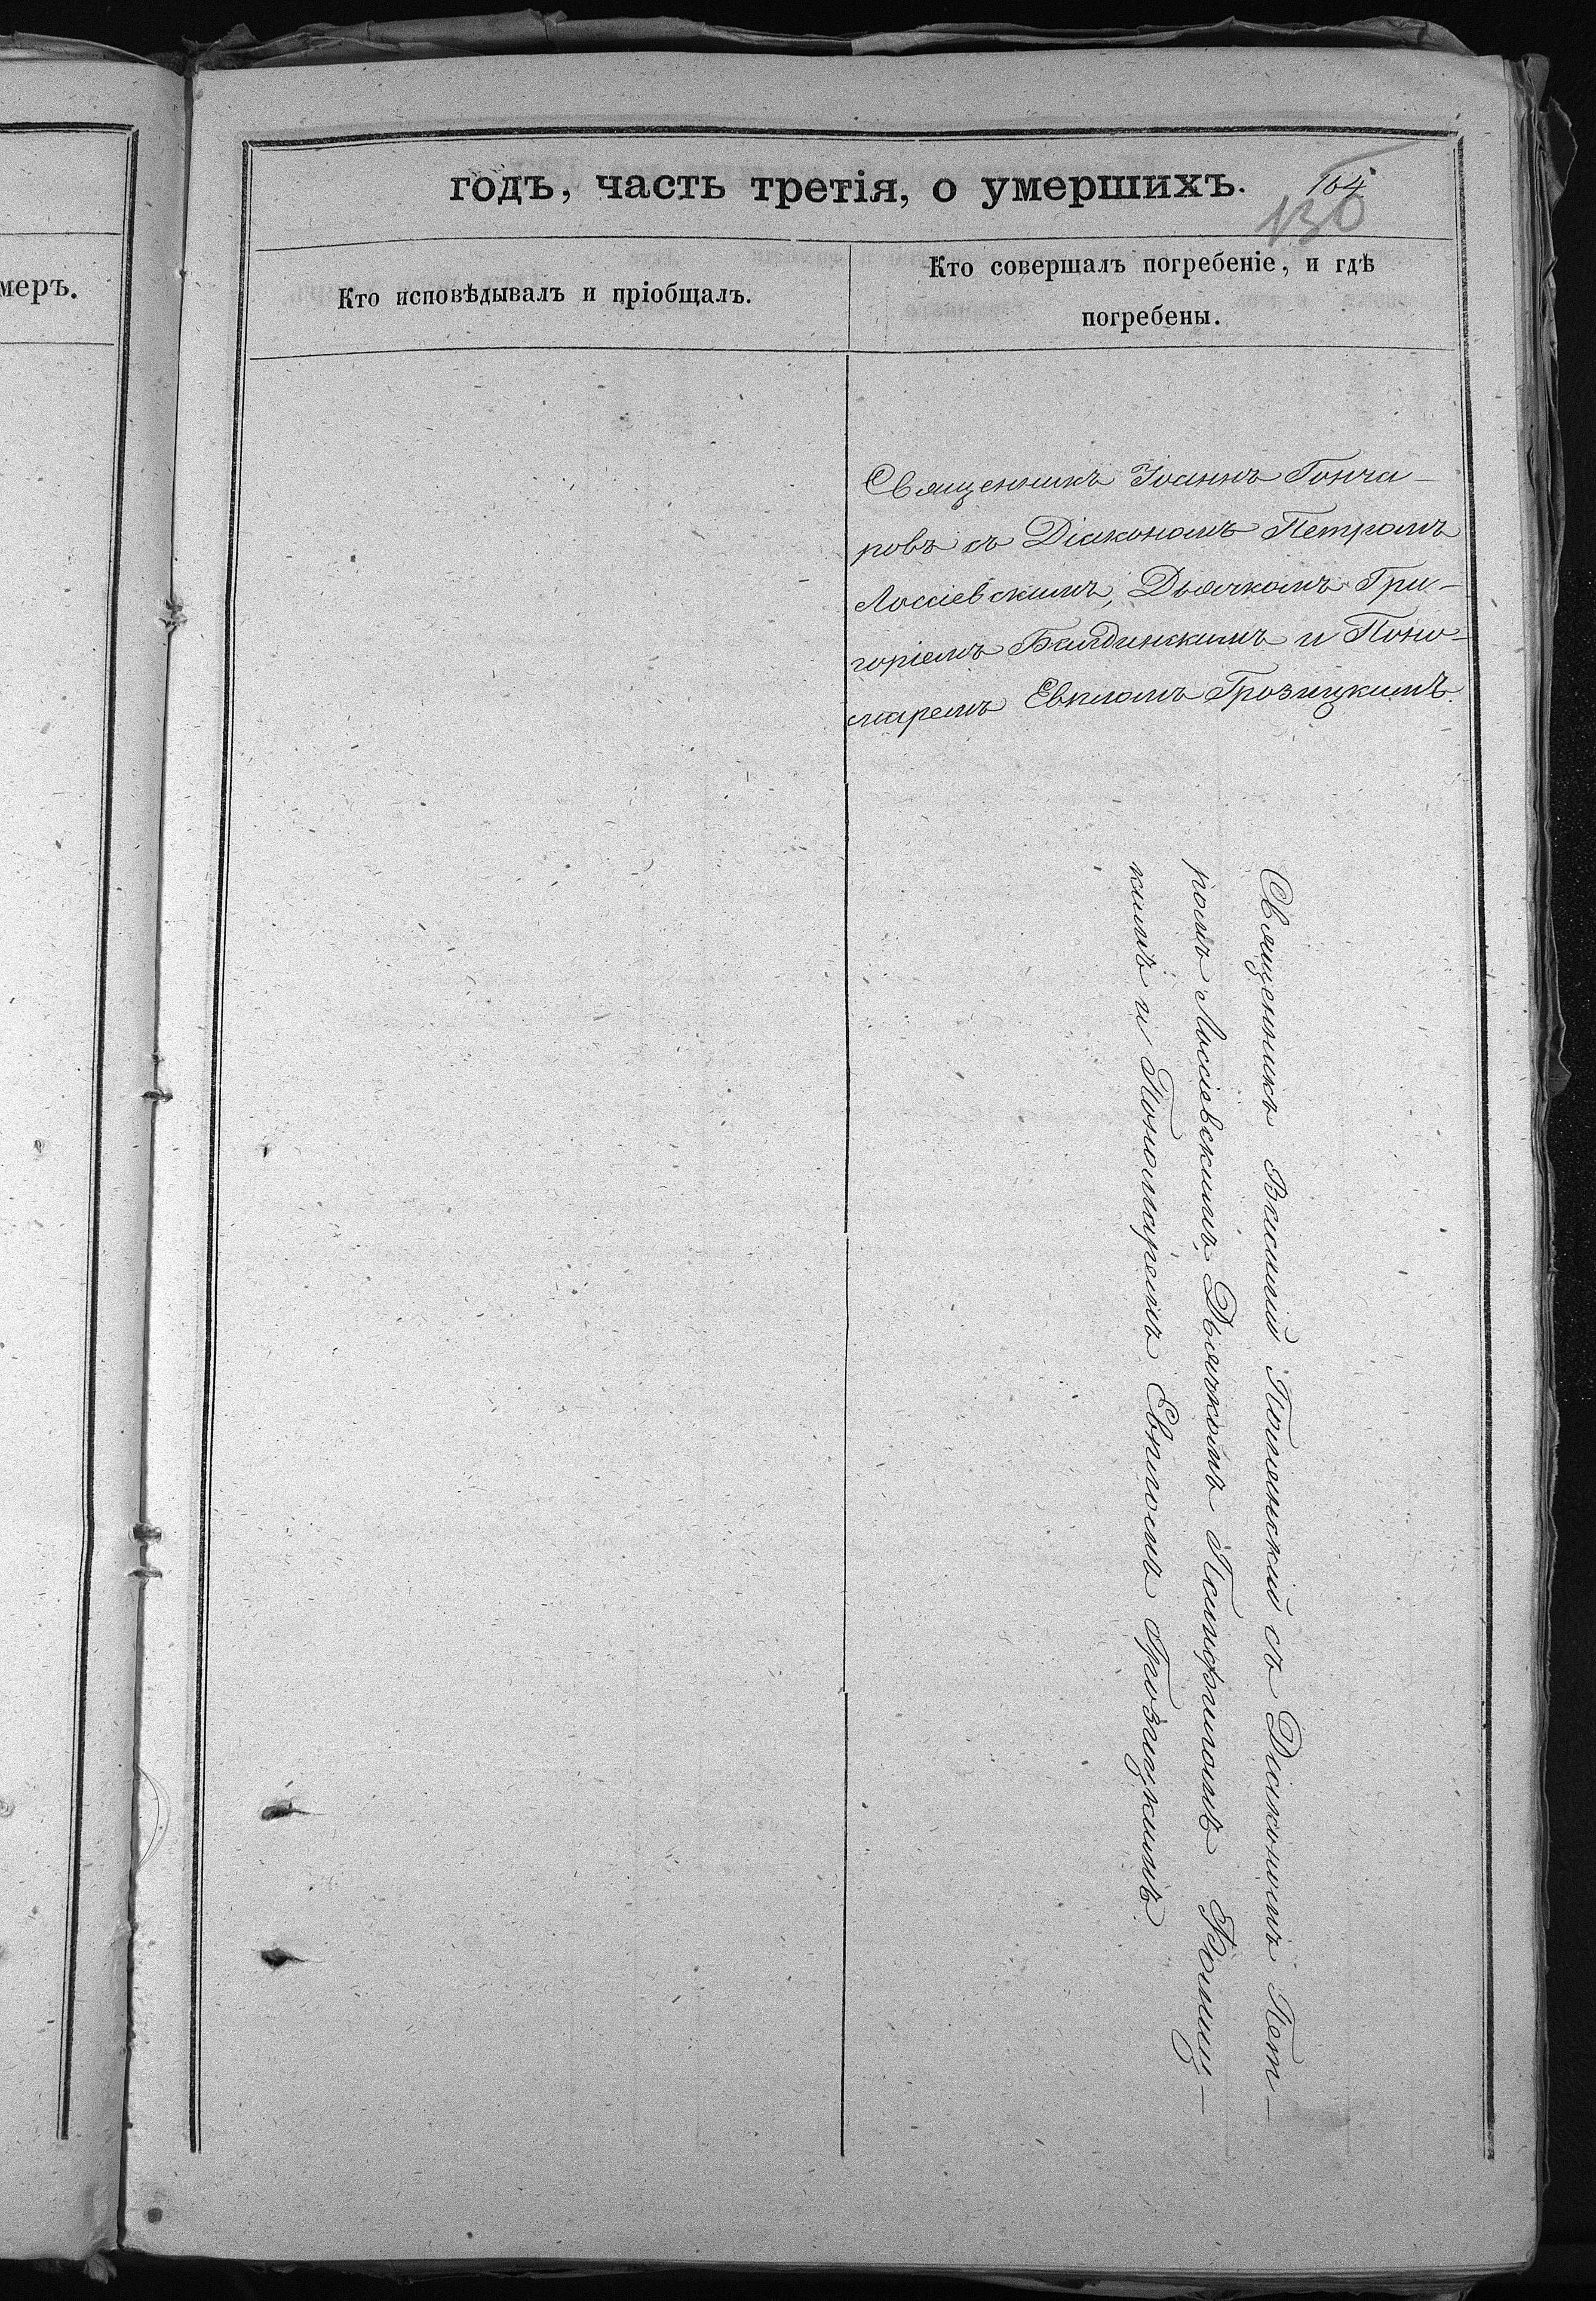 меръ.
годъ, часть третія, о умершихъ.
164
130
Кто исповѣдывалъ и пріобщалъ.
Кто совершалъ погребеніе, и гдѣ
погребены.
Священникъ Іоаннъ Гонча-
ровъ съ Діакономъ Петромъ
Лоссіевскимъ, Дьячкомъ Гри-
горіемъ Балдинскимъ и Поно-
маремъ Евпломъ Грозицкимъ.
Священникъ Василій съ Діакономъ Пет-
ромъ Лоссіевскимъ, Дьячкомъ Памфиломъ
кимъ и Пономаремъ Евпломъ Грозицкимъ.